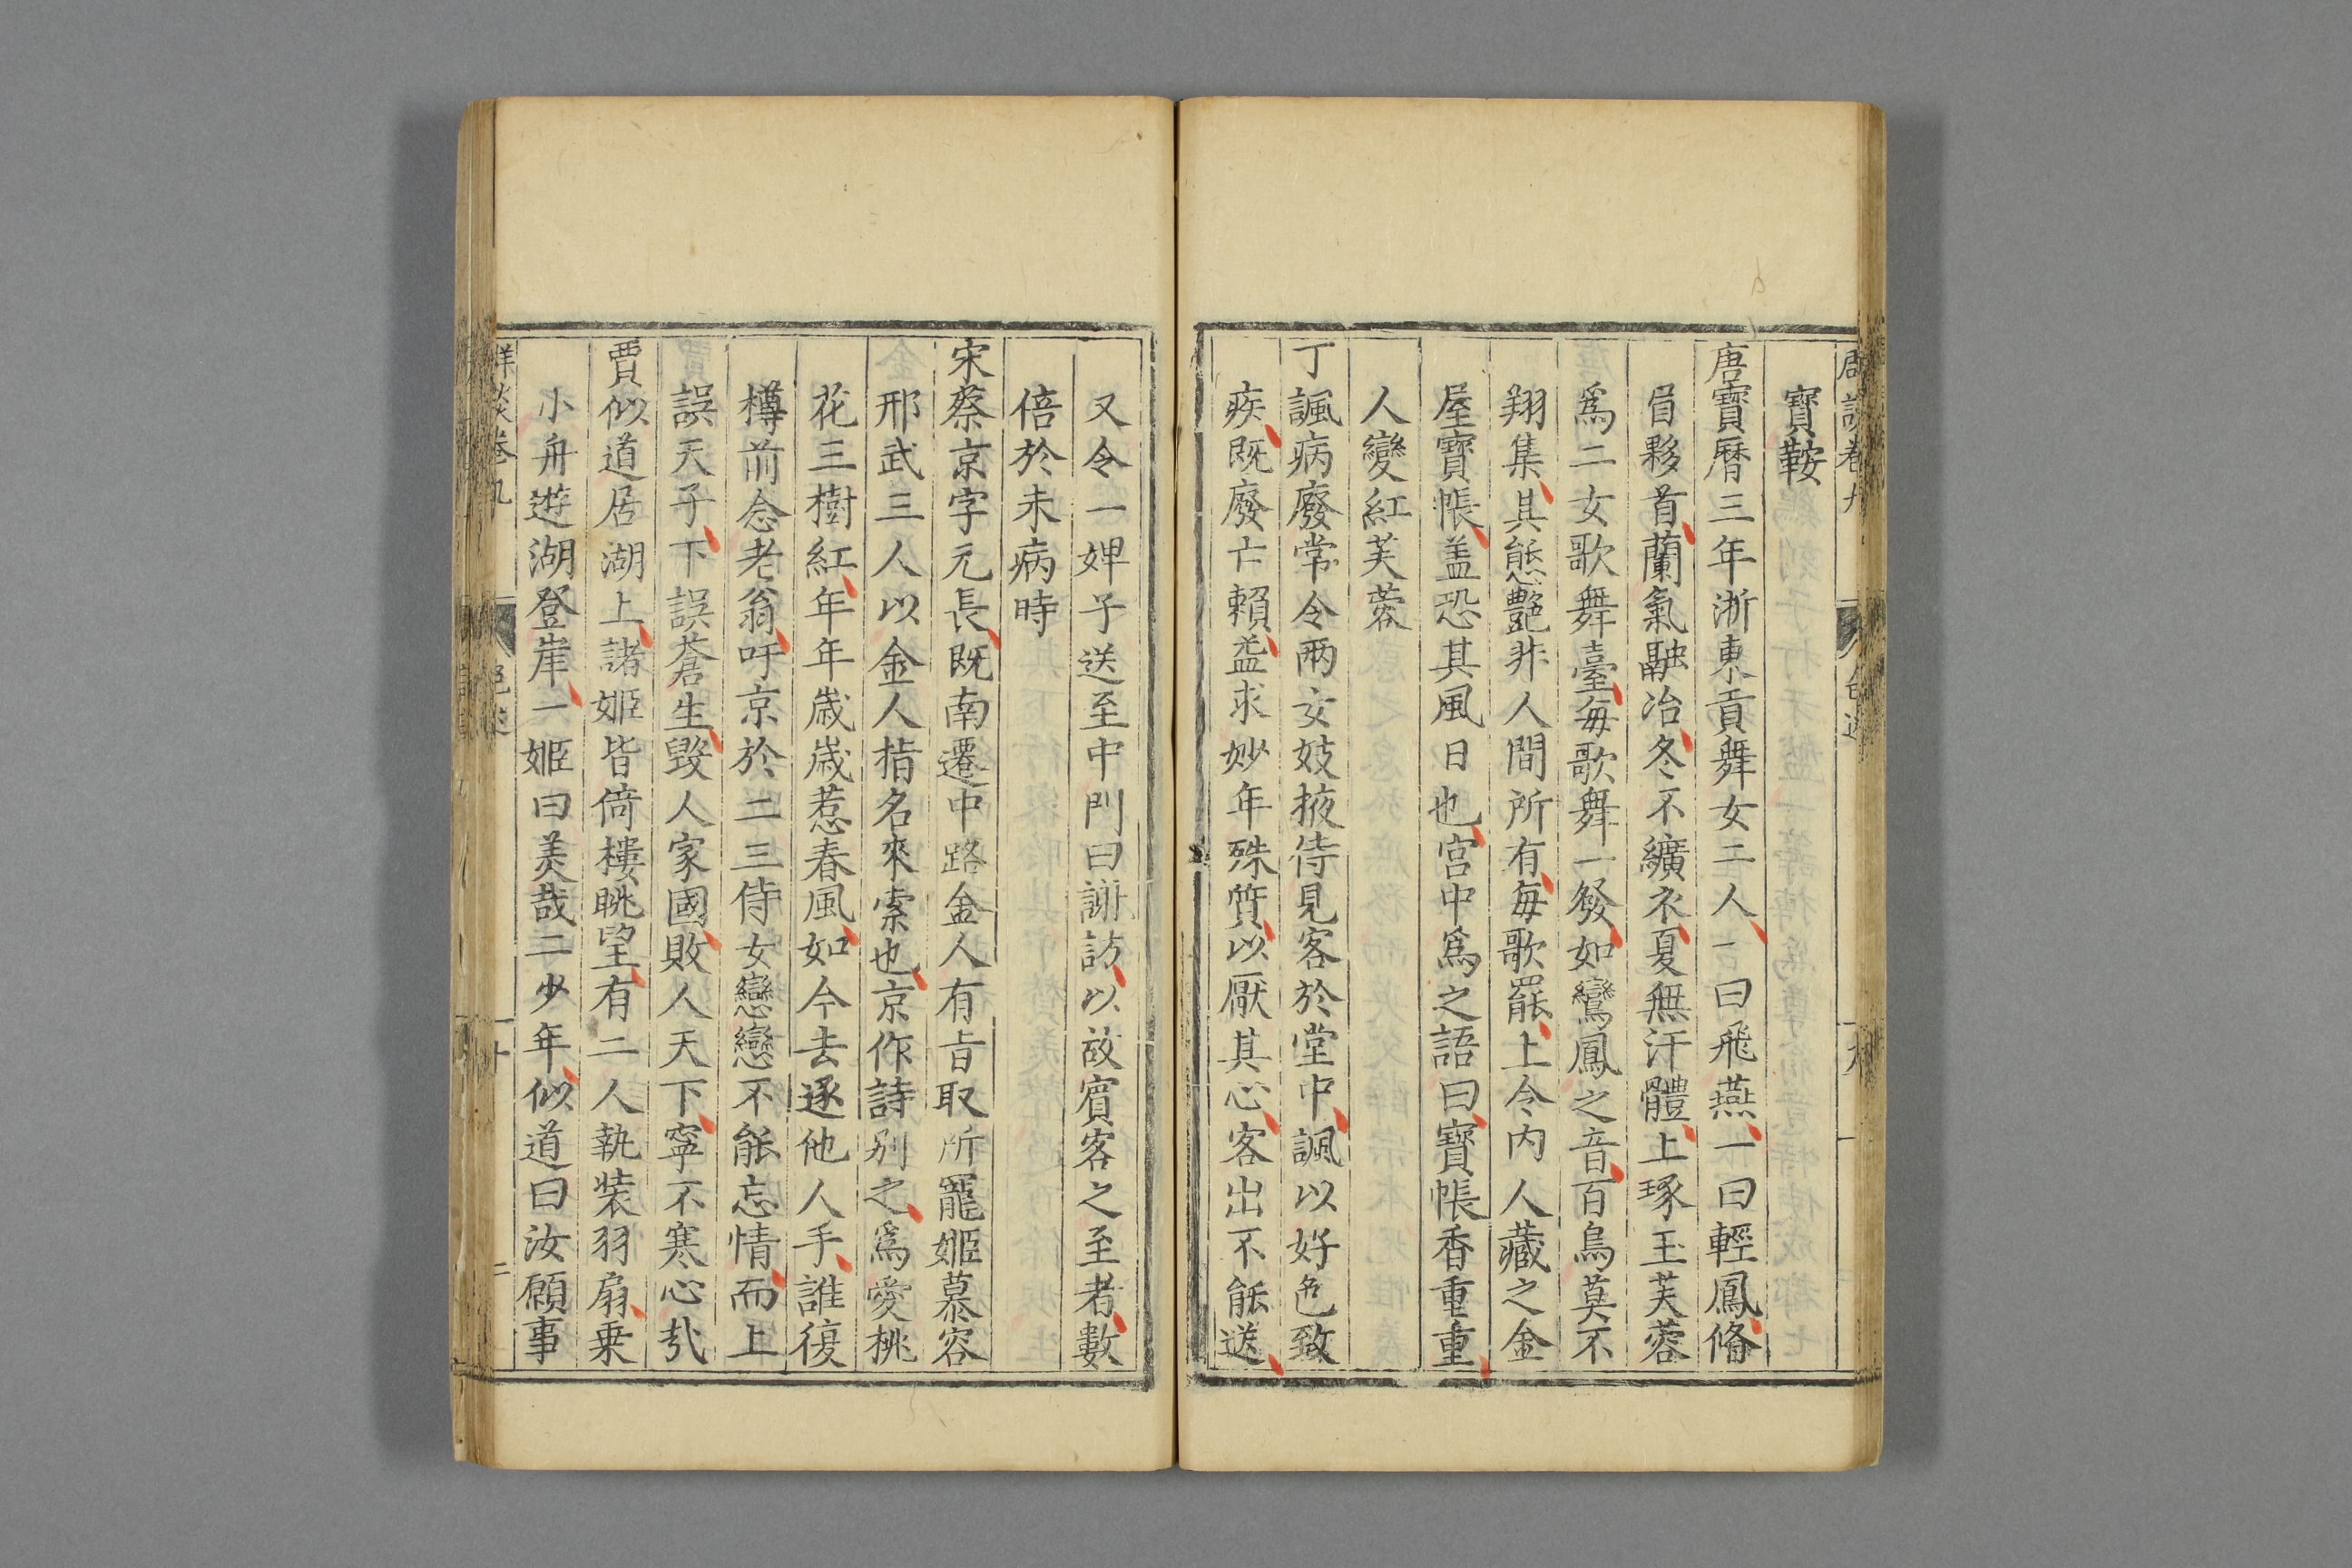 寶鞍
唐寶曆三年浙東貢舞女二人一曰飛燕一曰輕鳳脩
眉夥首蘭氣融冶冬不纊衣夏無汗體上琢玉芙蓉
爲二女歌舞臺每歌舞一發如鸞鳳之音百鳥莫不
翔集其態艷非人間所有每歌罷上令內人藏之金
屋寶帳盖恐其風日也宮中爲之語曰寶帳香重重
人變紅芙蓉
丁諷病廢常令兩女妓掖侍見客於堂中諷以好色致
疾既廢亡賴益求妙年殊質以厭其心客出不能送
又令一婢子送至中門曰謝訪以故賓客之至者數
倍於未病時
宋蔡京字元長既南遷中路金人有旨取所寵姬慕容
邢武三人以金人指名來索也京作詩別之爲愛桃
花三樹紅年年歲歲惹春風如今去逐他人手誰復
樽前念老翁吁京於二三侍女戀戀不能忘情而上
誤天子下誤蒼生毀人家國敗人天下寧不寒心哉
賈似道居湖上諸姬皆倚樓眺望有二人執裝羽扇乗
小舟遊湖登崖一姬曰美哉二少年似道曰汝願事
卷九
十